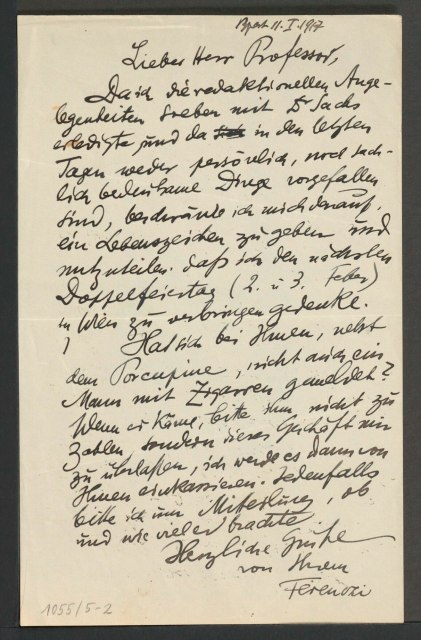 Bpest 11. I. 1917
Lieber Herr Professor,
Da ich die redaktionellen Ange-
legenheiten soeben mit Dr Sachs
erledigte und da in den letzten
Tagen weder persönlich, noch sach-
lich bedeutsame Dinge vorgefallen
sind, beschränke ich mich darauf,
ein Lebenszeichen zu geben und
mitzuteilen, daß ich den nächsten
Doppelfeiertag (2. u. 3. Feber)
in Wien zu verbringen gedenke.
Hat sich bei Ihnen, nebst
dem Porcupine, nicht auch ein
Mann mit Zigarren gemeldet?
Wenn er käme, bitte ihm nicht zu
zahlen sondern dieses Geschäft mir
zu überlaßen, ich werde es dann von
Ihnen einkassieren. Jedenfalls
bitte ich um Mitteilung, ob
und wie viel er brachte
Herzliche Grüße
von Ihrem
Ferenczi
1055/5-2